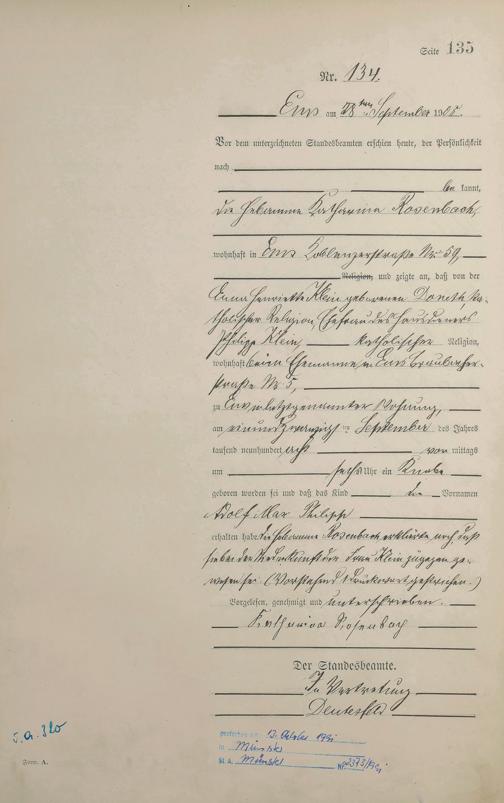 Seite 135
Nr. 134.
Ems am 28ten September 1908.
Vor dem unterzeichneten Standesbeamten erschien heute, der Persönlichkeit
nach
be kannt,
die Hebamme Katharina Rosenbach,
wohnhaft in Ems Koblenzerstraße Nr. 59,
Religion, und zeigte an, daß von der
Anna Henriette Klein geborenen Dorroth, ka-
tholischer Religion, Ehefrau des Hausdieners
Philipp Klein, katholischer Religion,
wohnhaft beim Ehemanne in Ems Braubacher-
straße Nr. 5,
zu Ems in letztgenannter Wohnung,
am einundzwanzigsten September des Jahres
tausend neunhundert acht vor mittags
um sechs Uhr ein Knabe
geboren worden sei und daß das Kind die Vornamen
Adolf Max Philipp
erhalten habe. Die Hebamme Rosenbach erklärte noch daß
sie bei der Niederkunft der Frau Klein zugegen ge-
wesen sei. (Vorstehend 1 Druckwort gestrichen.)
Vorgelesen, genehmigt und unterschrieben.
Katharina Rosenbach
Der Standesbeamte.
In Vertretung
gestorben am 12. Oktober
in Münster
St. A. Münster Nr. 2373/
Form. A.